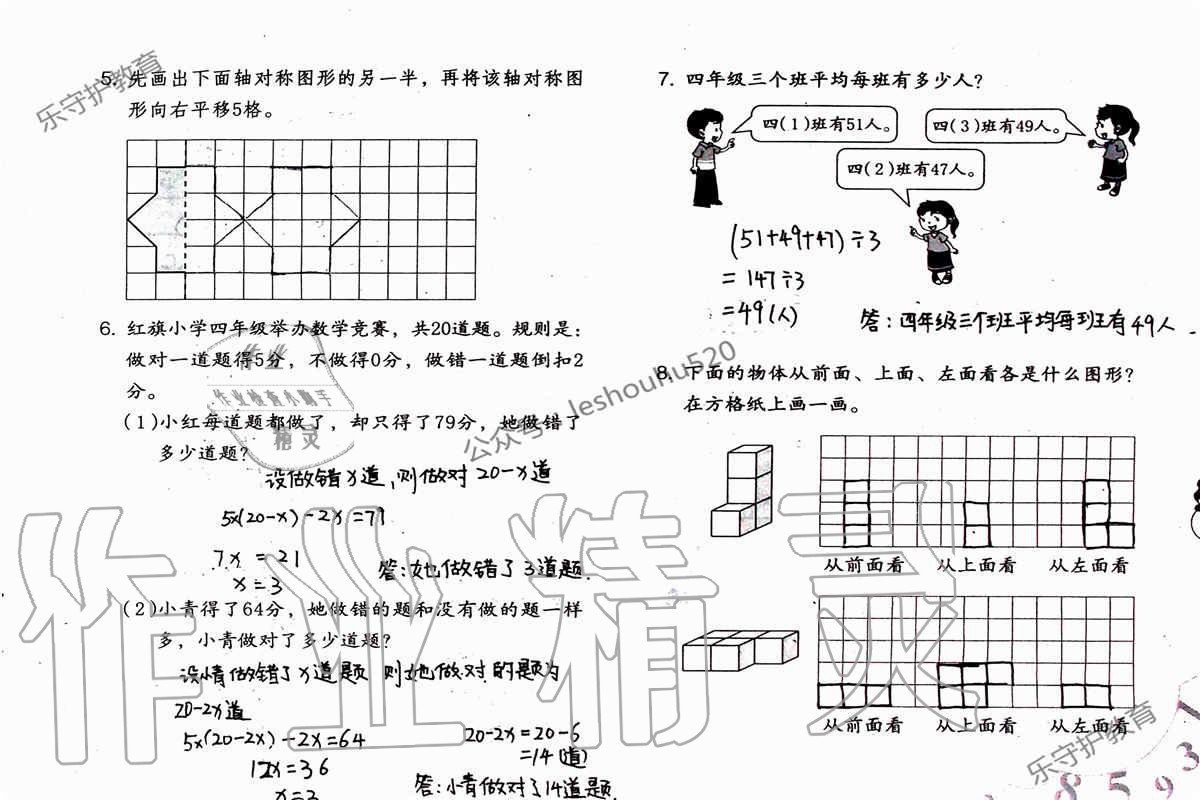 5. 先画出下面轴对称图形的另一半，再将该轴对称图
形向右平移5格。
6. 红旗小学四年级举办数学竞赛，共20道题。规则是：
做对一道题得5分，不做得0分，做错一道题倒扣2
分。
(1)小红每道题都做了，却只得了79分，她做错了
多少道题？
设做错x道，则做对20-x道
5x(20-x)-2x=79
7x=21
x=3
答：她做错了3道题.
(2)小青得了64分，她做错的题和没有做的题一样
多，小青做对了多少道题？
设情做错了x道题 则她做对的题为
20-2x道
5x(20-2x)-2x=64
12x=36
x=3
20-2x=20-6
=14(道)
答：小青做对了14道题.
7. 四年级三个班平均每班有多少人？
四(1)班有51人。
四(3)班有49人。
四(2)班有47人。
(51+49+47)÷3
=147÷3
=49(人)
答：四年级三个班平均每班有49人
8. 下面的物体从前面、上面、左面看各是什么图形？
在方格纸上画一画。
从前面看 从上面看 从左面看
从前面看 从上面看 从左面看
乐守护教育
公众号：leshouhu520
乐守护教育
作业精灵
作业
作业检查小助手
精灵
8593